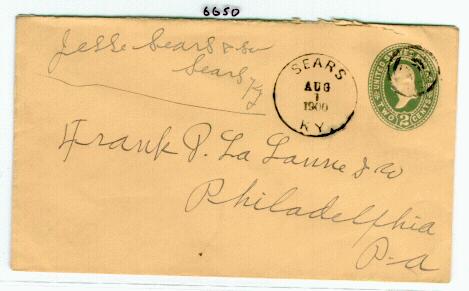 6650
Jesse Sears & Son
Sears Ky
SEARS
AUG
1
1900
KY.
UNITED STATES
TWO 2 CENTS
Frank P. La Lanne & Co
Philadelphia
Pa